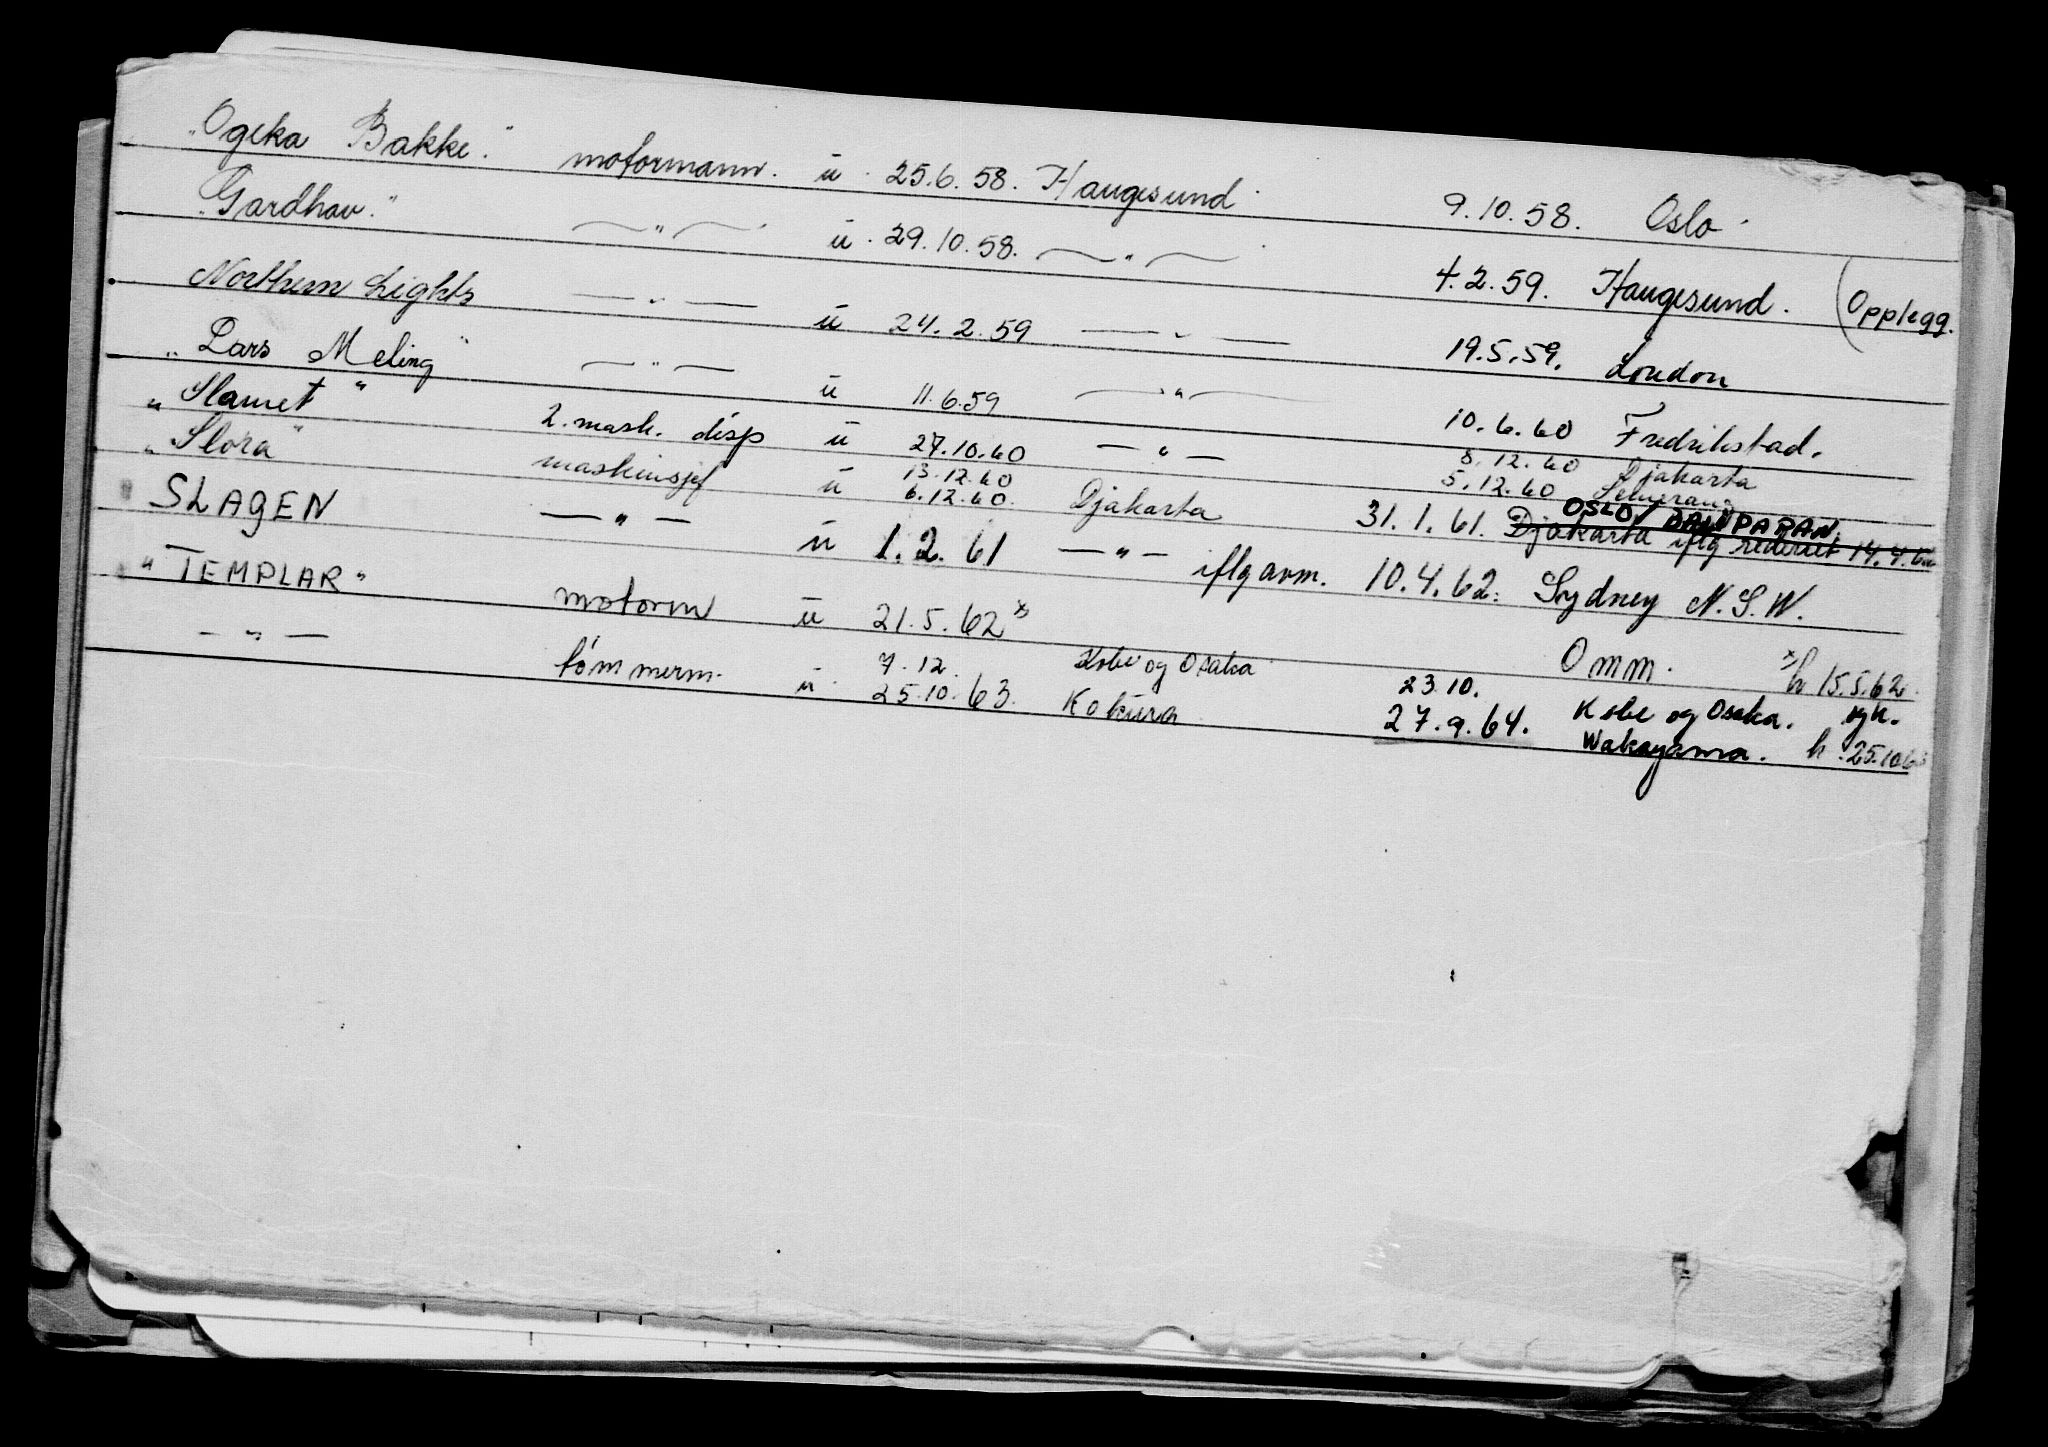 "Ogeka Bakke." motormann. u. 25.6.58. Haugesund. 9.10.58. Oslo.
"Gardhav." —"— u. 29.10.58. —"— 4.2.59. Haugesund. (Opplegg.
Northern Lights —"— u 24.2.59 —"— 19.5.59. London
"Lars Meling" —"— u 11.6.59 —"— 10.6.60 Fredrikstad.
"Slamet" 2. mask. disp u 27.10.60 —"— 8.12.60 Djakarta
13.12.60 5.12.60 Semerang
"Slora" maskinsjef u 6.12.60. Djakarta 31.1.61. Djakarta iflg rederiet 14.4.
OSLO/
SLAGEN —"— u 1.2.61 —"— iflg avm. 10.4.62. Sydney N.S.W.
"TEMPLAR" motorm u 21.5.62 x Omm. x h 15.5.62.
—"— tømmerm. u. 7.12. Kobe og Osaka 23.10. Kobe og Osaka. syk.
25.10.63. Kokura 27.9.64. Wakayama. h. 25.10.63